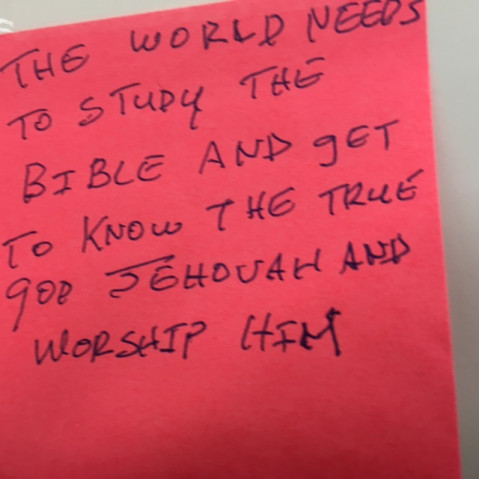 THE WORLD NEEDS
TO STUDY THE
BIBLE AND gET
TO KNOW THE TRUE
gOD JEHOVAH AND
WORSHIP HIM